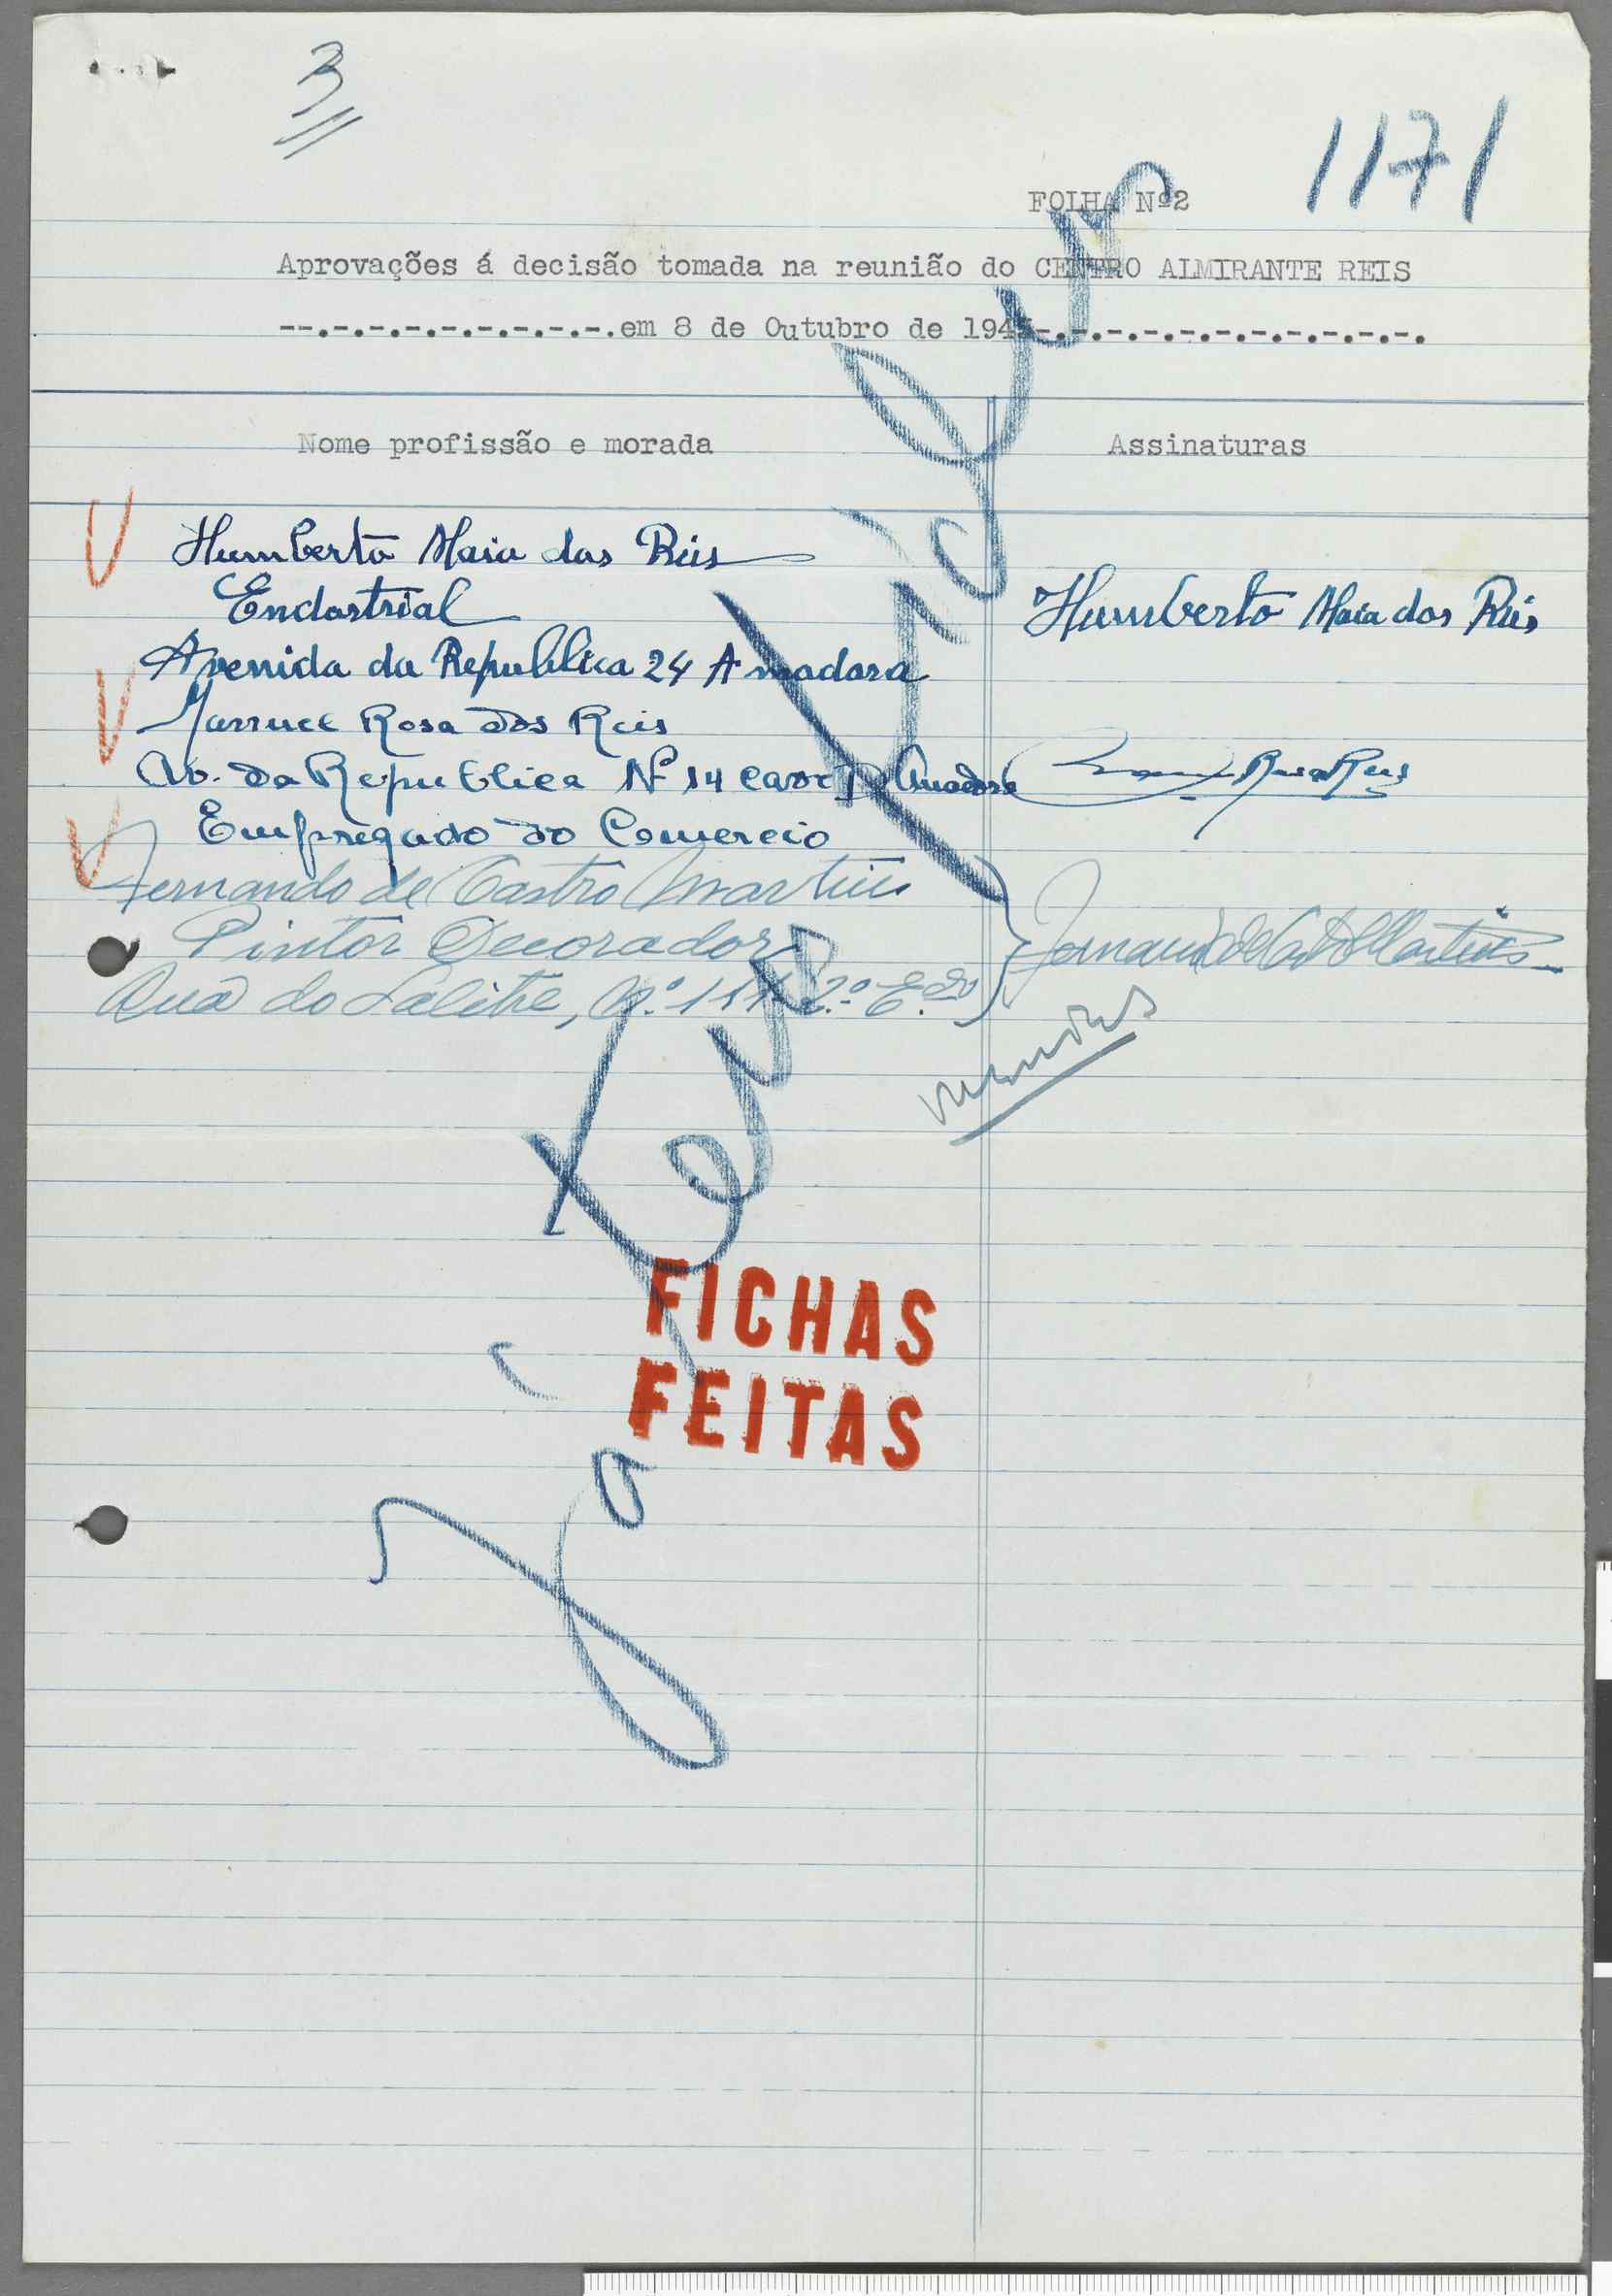 3
1171
FOLHA Nº2
Aprovações á decisão tomada na reunião do CENTRO ALMIRANTE REIS
--.-.-.-.-.-.-.-.-.em 8 de Outubro de 1945-.-.-.-.-.-.-.-.-.-.-.
Nome profissão e morada
Assinaturas
Humberto Maia dos Reis
Endostrial
Humberto Maia dos Reis
Avenida da Republica 24 Amadora
Manuel Rosa dos Reis
Av. da Republica Nº 14 cave D Amadora
Rosa Reis
Empregado do Comercio
Fernando de Castro Martins
Pintor Decorador
Fernando de Castro Martins
Rua do Salitre, Nº. 2º E.
Já tem
FICHAS
FEITAS